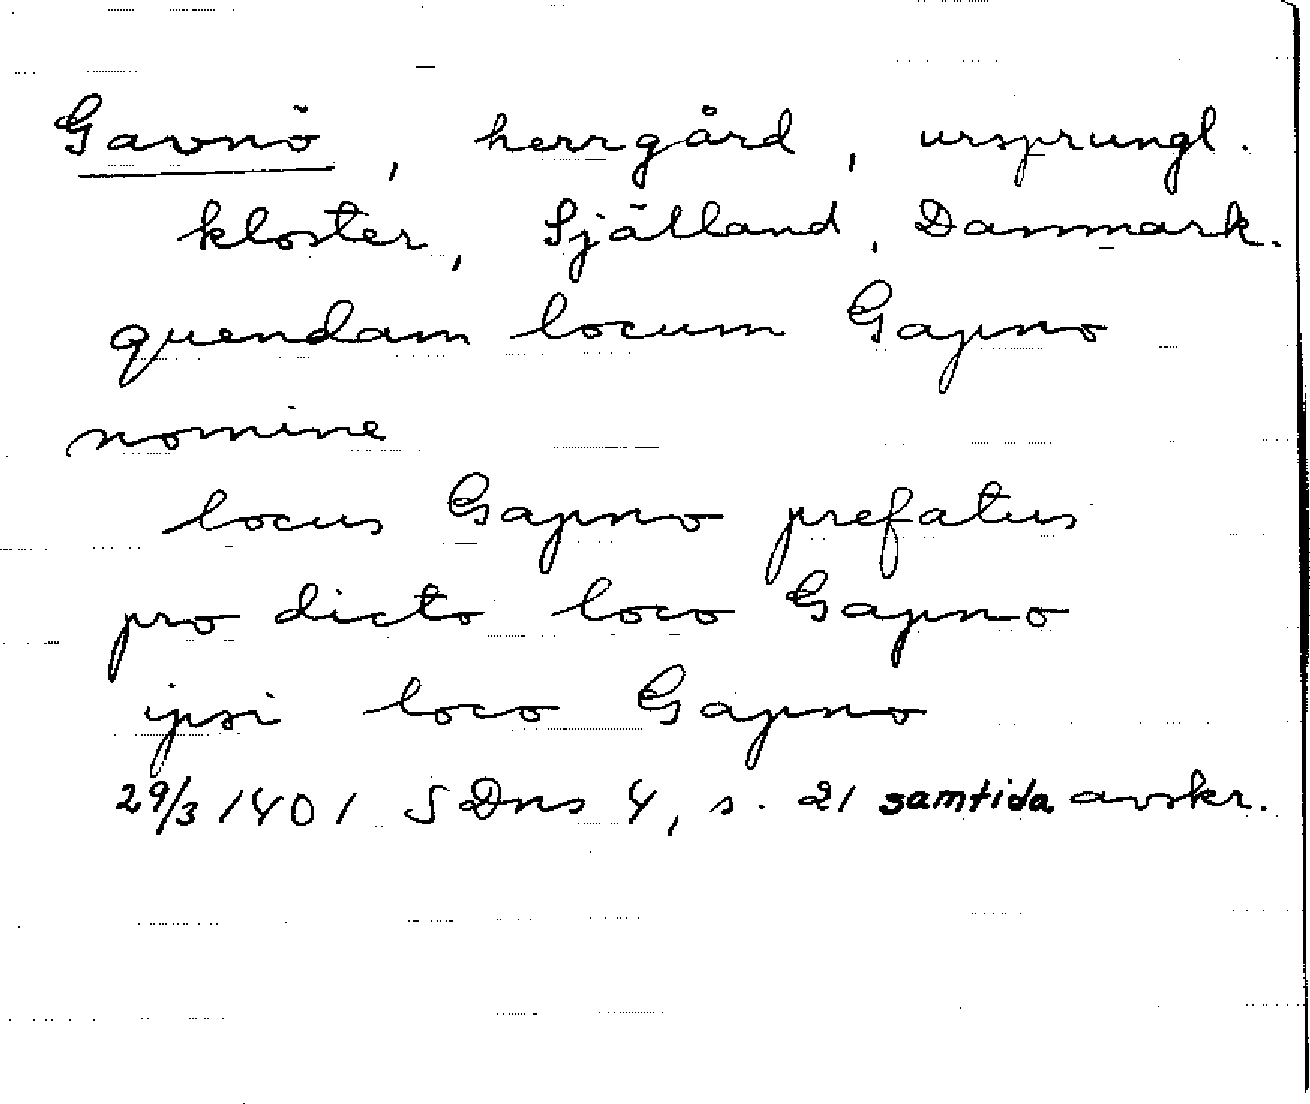 Gavnö, herrgård, ursprungl.
kloster, Själland, Danmark.
quendam locum Gapno
nomine
locus Gapno prefatus
pro dicto loco Gapno
ipsi loco Gapno
29/3 1401 SDns 4, s. 21 samtida avskr.